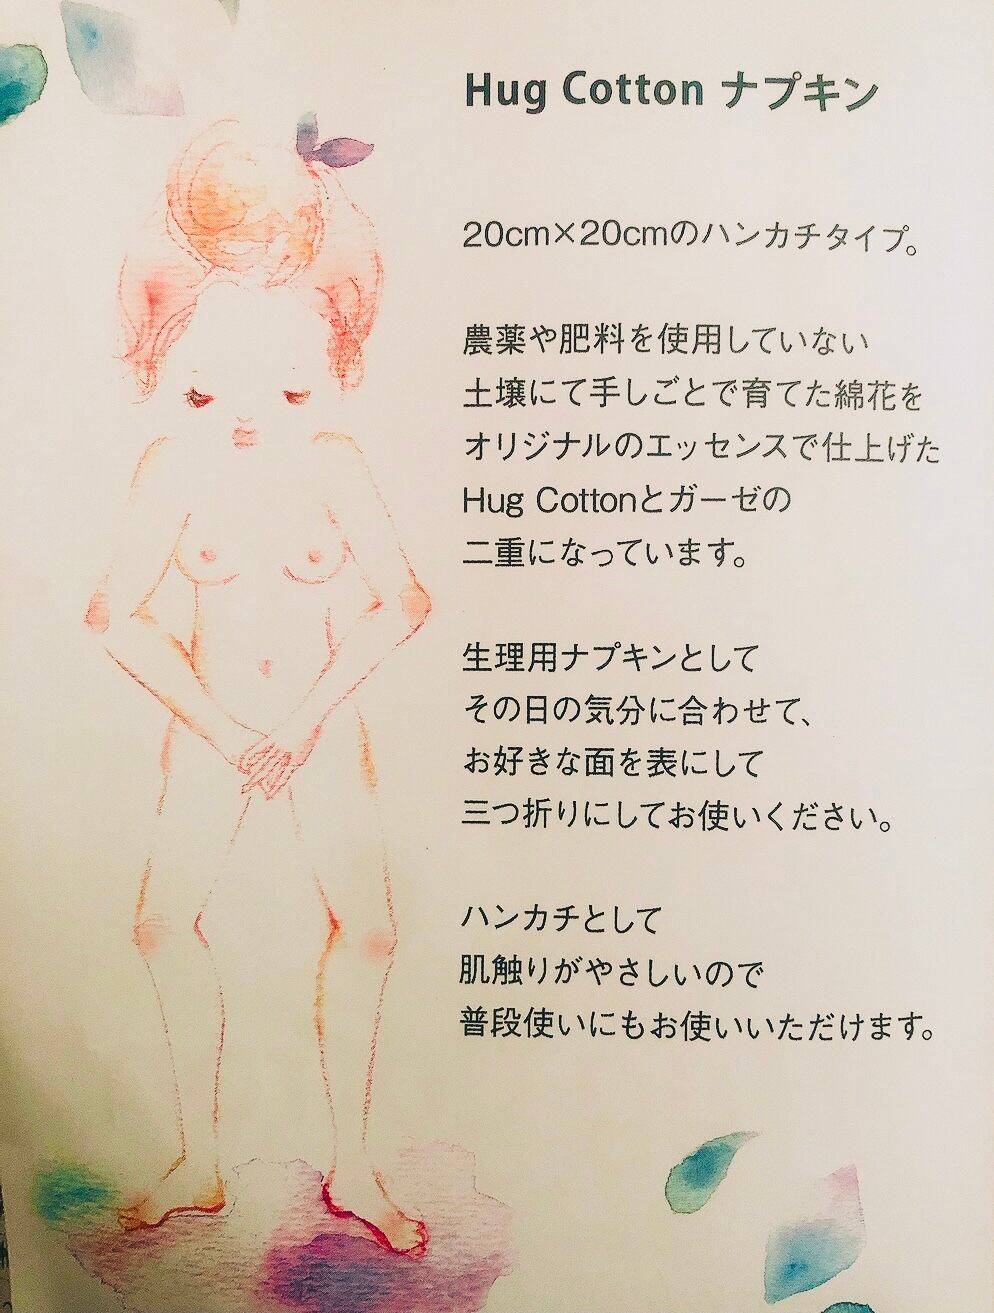 Hug Cotton ナプキン
20cm×20cmのハンカチタイプ。
農薬や肥料を使用していない
土壌にて手しごとで育てた綿花を
オリジナルのエッセンスで仕上げた
Hug Cottonとガーゼの
二重になっています。
生理用ナプキンとして
その日の気分に合わせて、
お好きな面を表にして
三つ折りにしてお使いください。
ハンカチとして
肌触りがやさしいので
普段使いにもお使いいただけます。